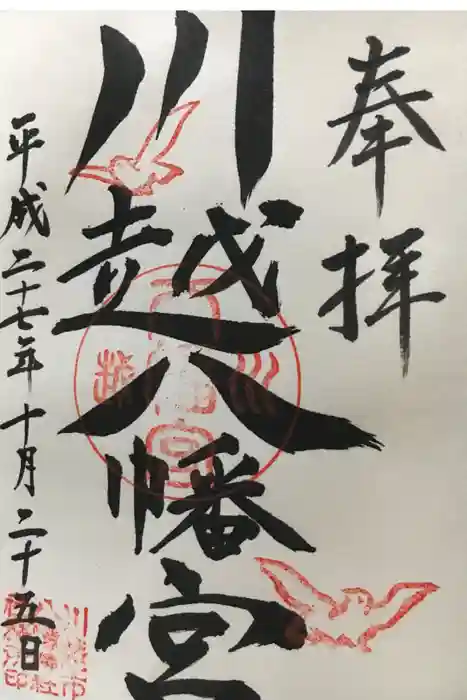 奉拝
川越八幡宮
平成二十七年十月二十五日